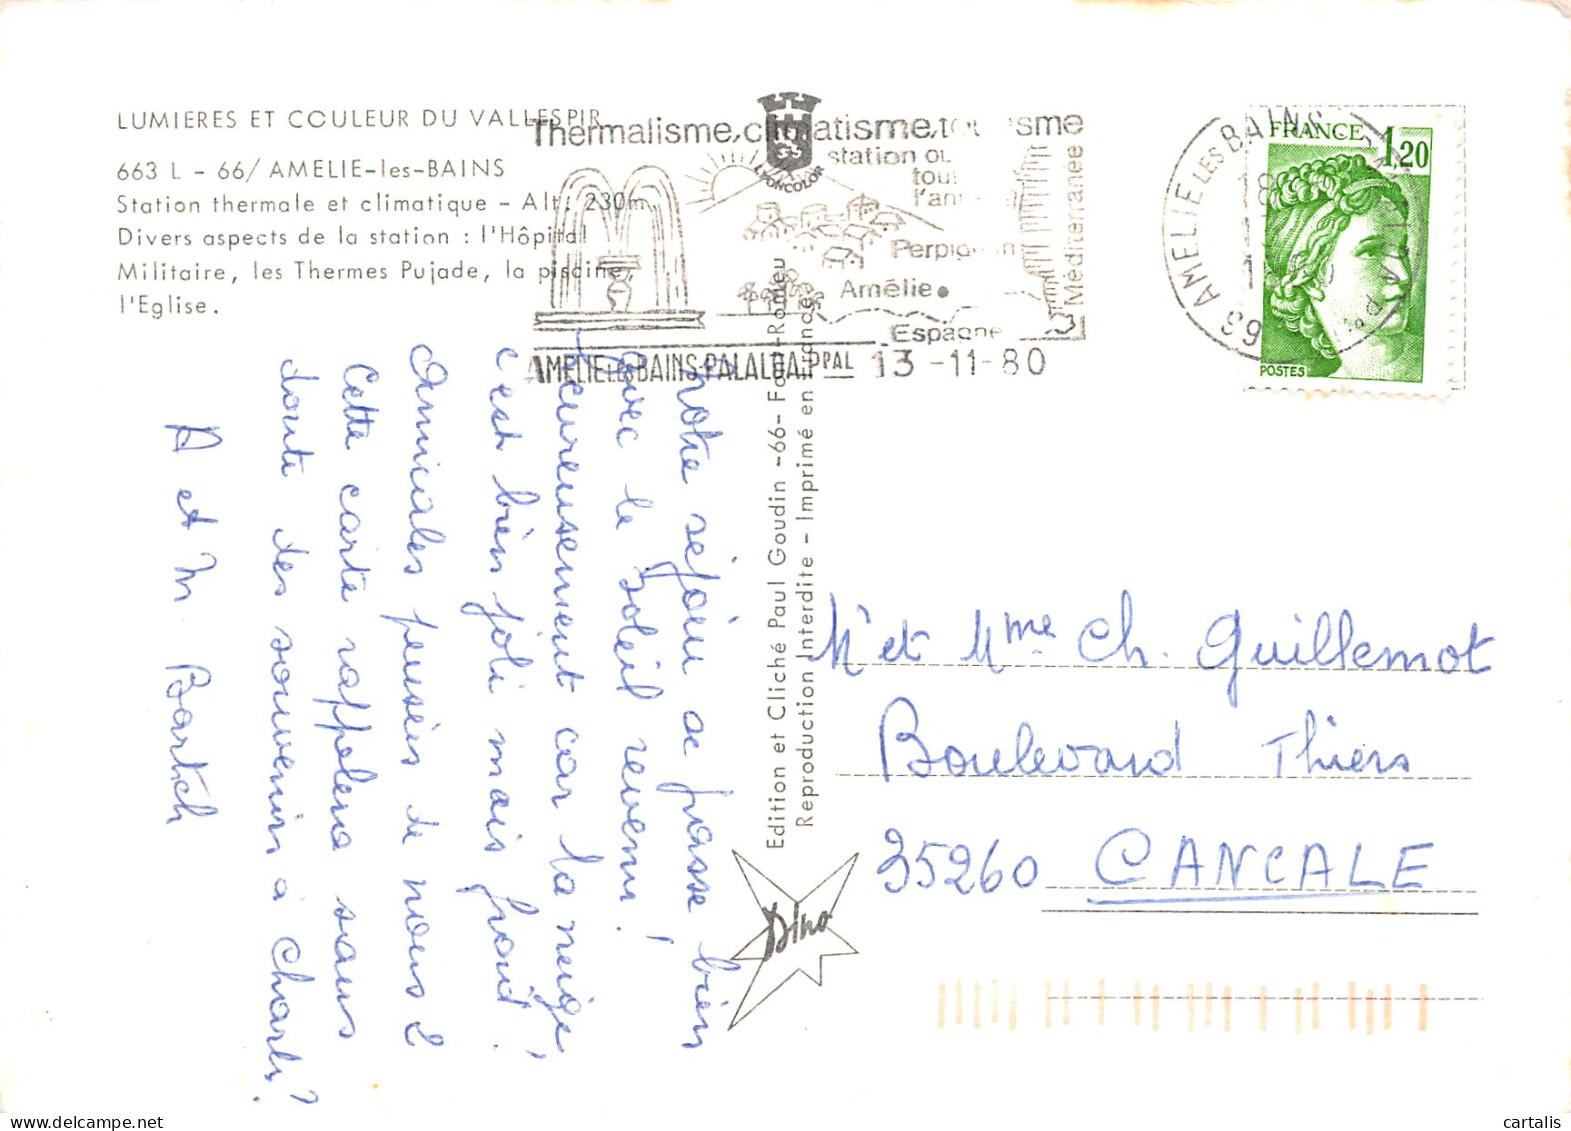 LUMIERES ET COULEUR DU VALLESPIR
663 L - 66/ AMELIE-les-BAINS
Station thermale et climatique - Alt. 230m.
Divers aspects de la station : l'Hôpital
Militaire, les Thermes Pujade, la piscine,
l'Eglise.
Thermalisme, climatisme, tourisme
station ou
tou
l'an
LYONCOLOR
Perpignan
Amélie
Espagne
Méditerranée
AMELIE LES BAINS-PALALDA PPAL 13-11-80
AMELIE LES BAINS
FRANCE 1,20
POSTES
Notre séjour se passe bien
avec le soleil revenu!
Heureusement car la neige
c'est bien joli mais froid!
Amicales pensées de nous 2
Cette carte rappelera sans
doute des souvenirs à Charles?
A et M Bartch
Edition et Cliché Paul Goudin -66- Font-Romeu
Reproduction Interdite - Imprimé en France
Dino
Mr et Mme Ch. Guillemot
Boulevard Thiers
35260 CANCALE
cartalis